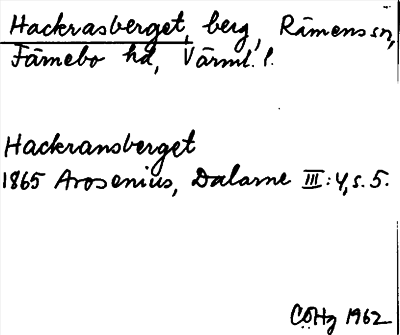 Hackrasberget, berg, Rämens sn,
Färnebo hd, Värml. l.
Hackransberget
1865 Arosenius, Dalarne III:4, s. 5.
CÖHg 1962